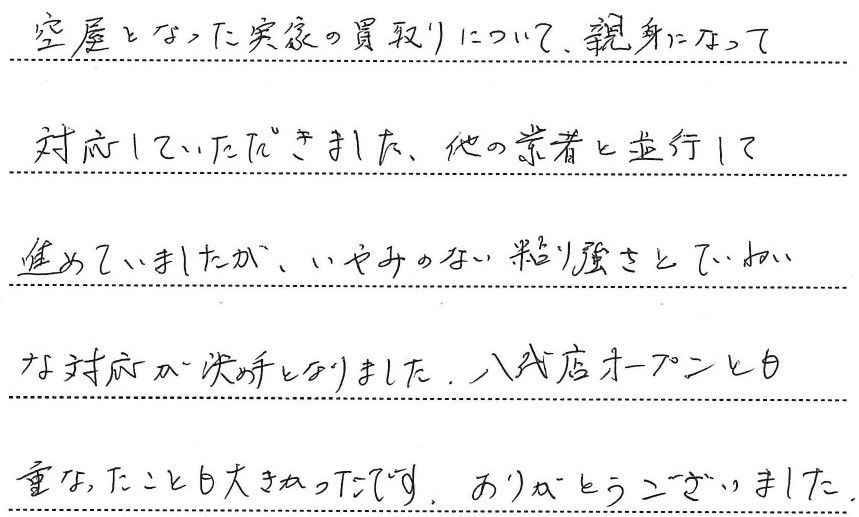 空屋となった実家の買取りについて、親身になって
対応していただきました、他の業者と並行して
進めていましたが、いやみのない粘り強さとていねい
な対応が決め手となりました．八代店オープンとも
重なったことも大きかったです．ありがとうございました．